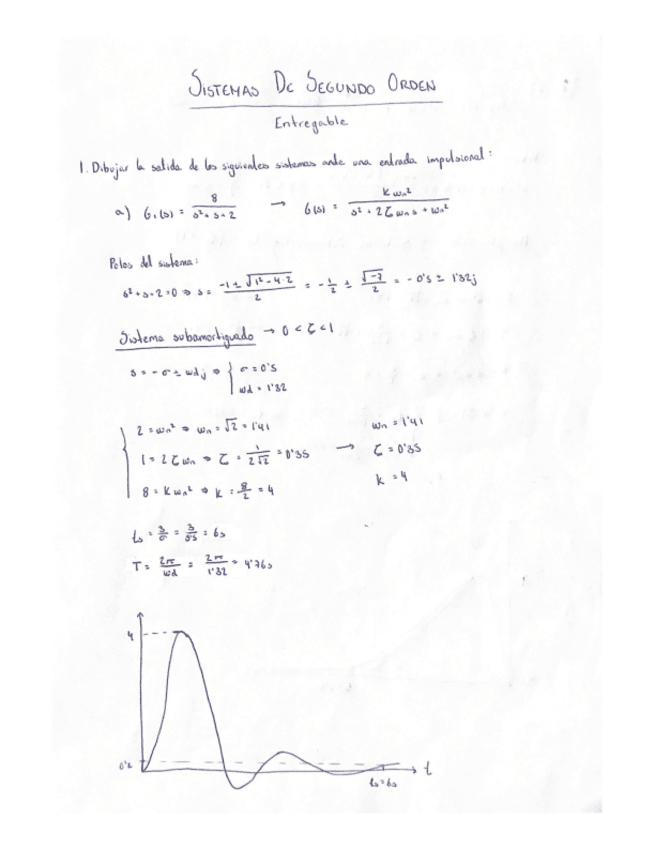 SISTEMAS DE SEGUNDO ORDEN
Entregable
1. Dibujar la salida de los siguientes sistemas ante una entrada impulsional:
a) G₁(s) = 8 / (s² + s + 2) → G(s) = K ωn² / (s² + 2ζ ωn s + ωn²)
Polos del sistema:
s² + s + 2 = 0 ⇒ s = (-1 ± √(1² - 4·2)) / 2 = -1/2 ± √-7 / 2 = -0'5 ± 1'32j
Sistema subamortiguado → 0 < ζ < 1
s = -σ ± ωd j ⇒ { σ = 0'5
ωd = 1'32
2 = ωn² ⇒ ωn = √2 = 1'41
1 = 2ζωn ⇒ ζ = 1 / (2√2) = 0'35 →
8 = K ωn² ⇒ K = 8/2 = 4
ωn = 1'41
ζ = 0'35
K = 4
ts = 3/σ = 3/0'5 = 6s
T = 2π/ωd = 2π/1'32 = 4'76s
4
0'2
t
ts = 6s